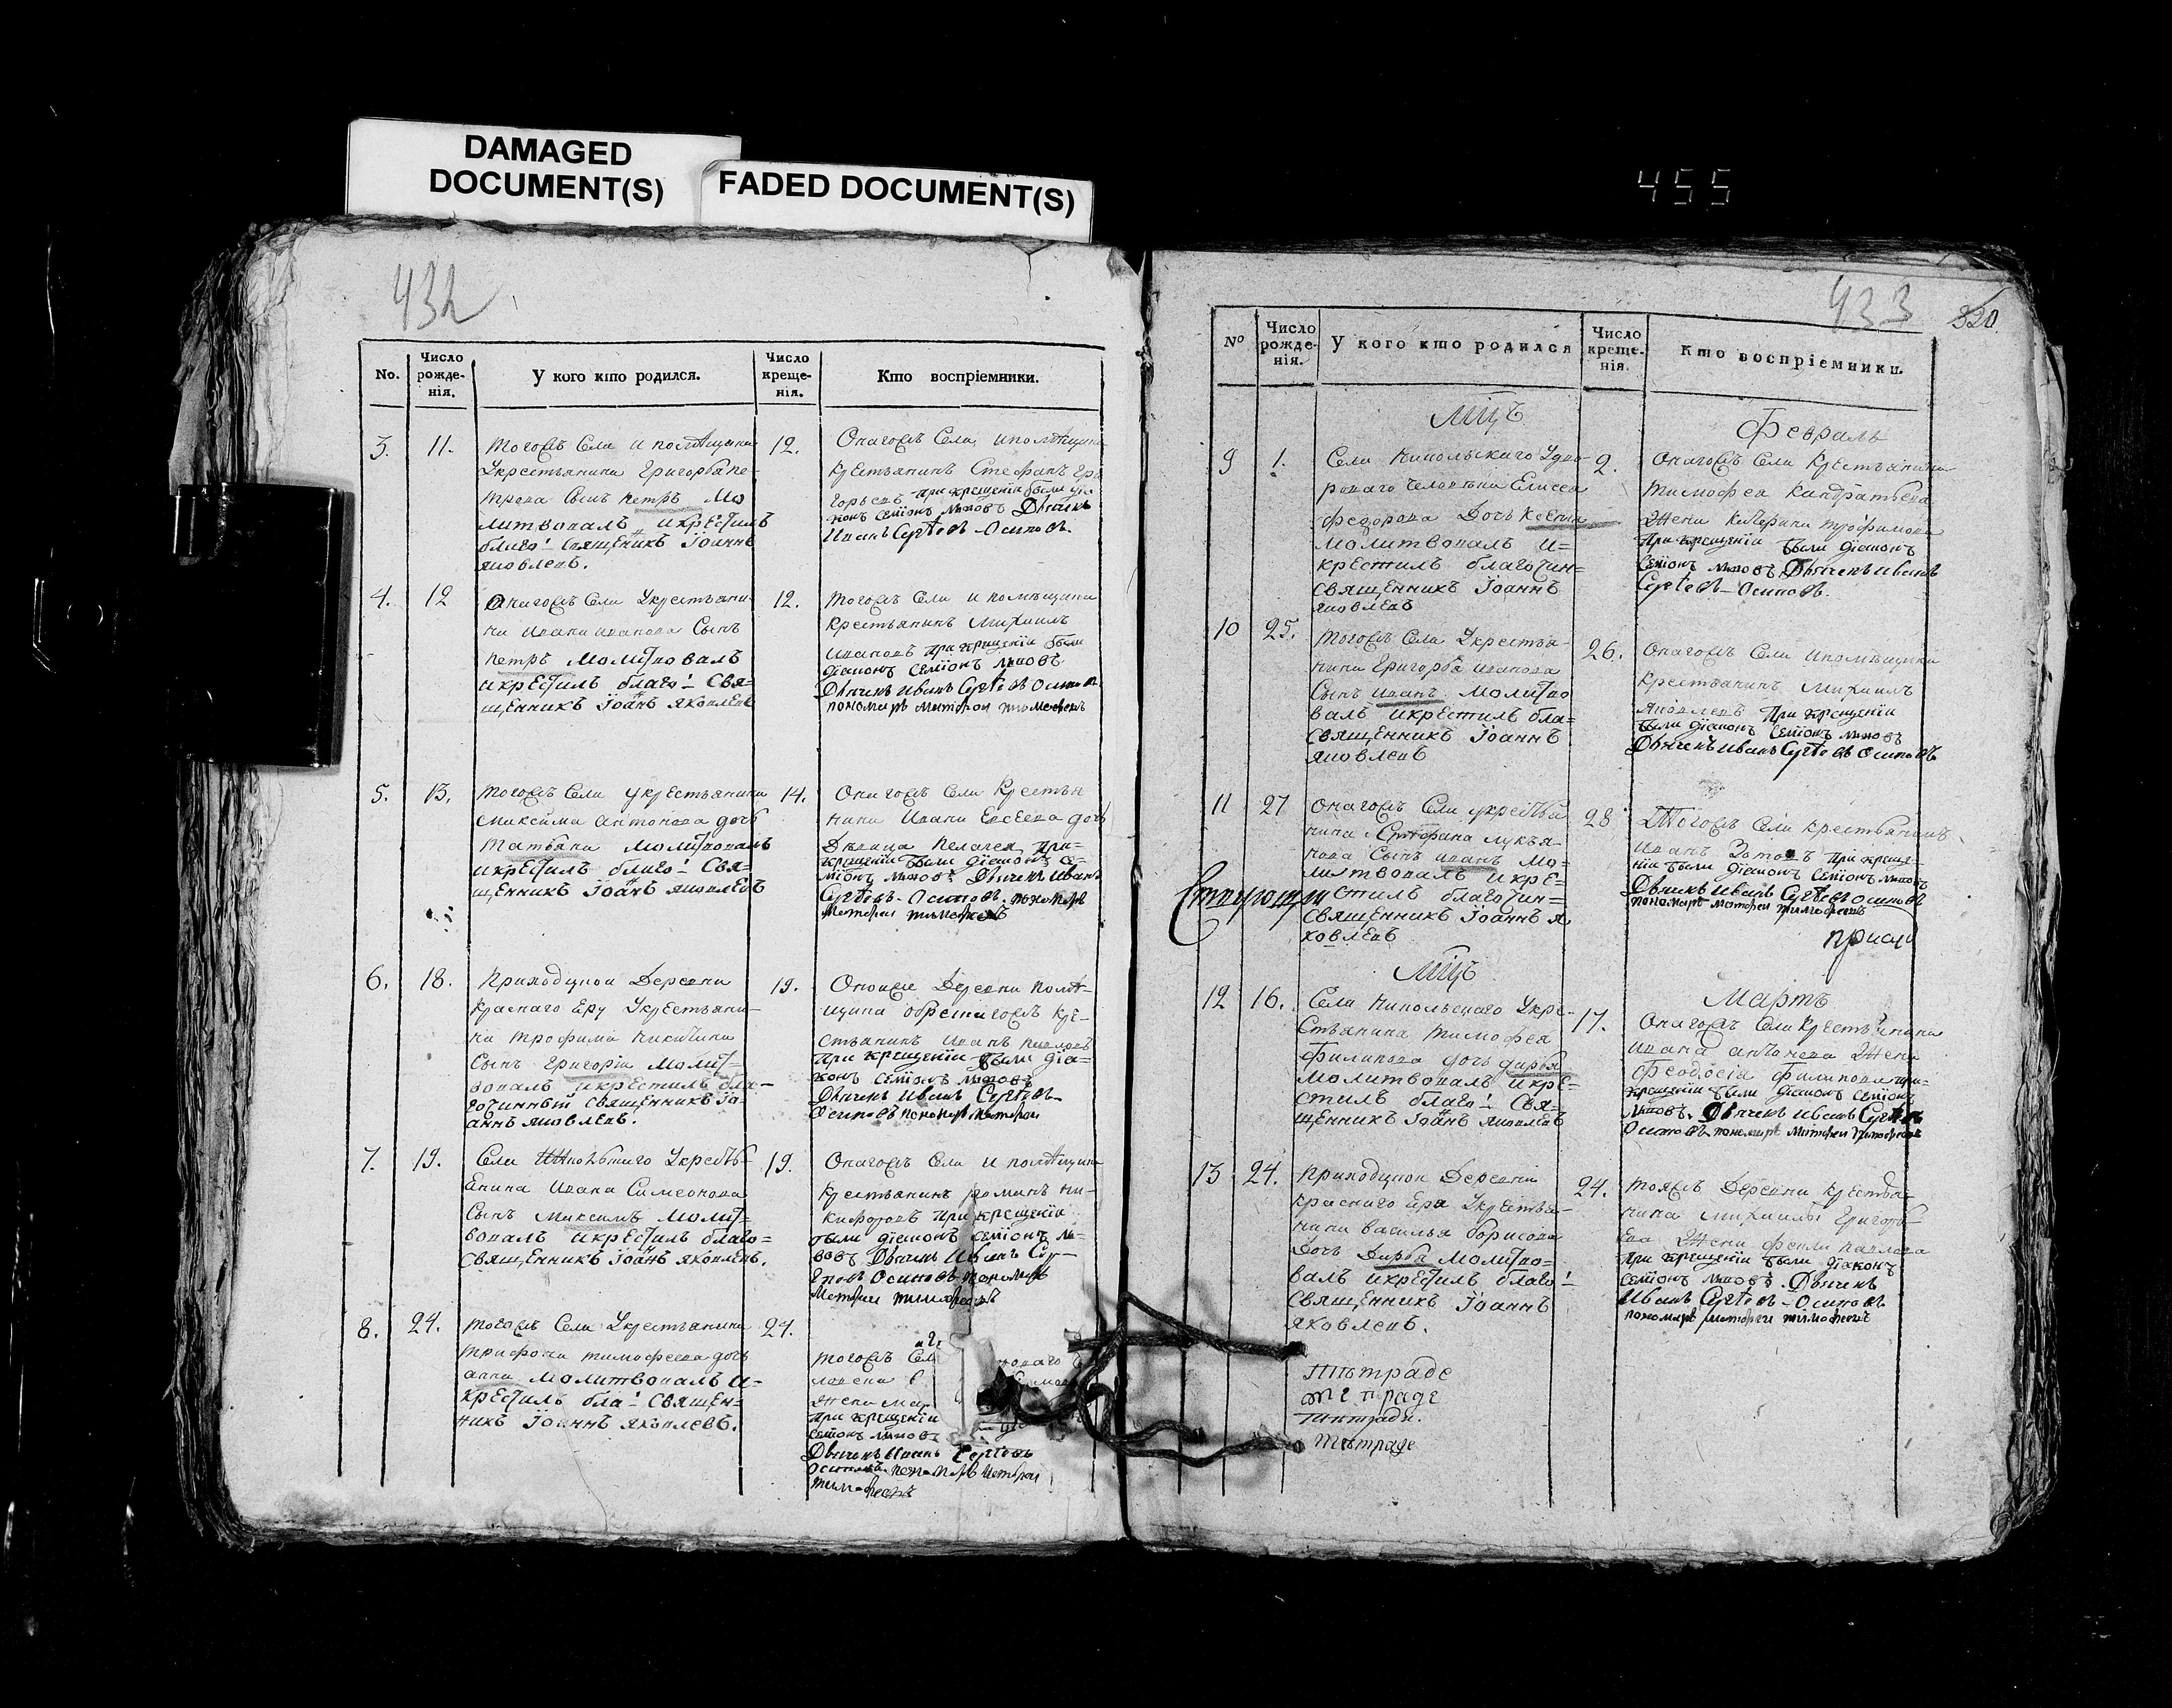 DAMAGED
DOCUMENT(S)
FADED DOCUMENT(S)
455
432
No.
Число рожде-нія.
У кого кто родился.
Число креще-нія.
Кто воспріемники.
3. 11.
тогожъ Села и помѣщика
Укрестьянина Григорья Пе-
трова Сынъ Петръ Мо
литвовалъ икрестилъ
благо! Священникъ Іоаннъ
яковлевъ.
12.
Онагожъ Села, ипомѣщика
крестьянинъ Стефанъ Гри
горьевъ при крещеніи были діа
конъ Семіонъ Дьячекъ
Иванъ Сергѣевъ Осиповъ.
4. 12
Онагожъ Села Укрестьяни
на Ивана иванова Сынъ
Петръ Молитвовалъ
икрестилъ благо! Свя=
щенникъ Іоанъ яковлевъ
12.
тогожъ Села и помѣщика
крестьянинъ Михаилъ
Ивановъ при крещеніи были
діаконъ Семіонъ
Дьячекъ иванъ Сергѣевъ Осиповъ
пономарь Матфеи тимофеевъ
5. 13.
тогожъ Села укрестьянина
максима антонова дочь
татьяна молитвовалъ
икрестилъ благо! Свя=
щенникъ Іоанъ яковлевъ
14.
Онагожъ Села Крестья
нина Ивана Евсеева дочь
Дѣвица Пелагея при=
крещеніи были діаконъ се=
міонъ Дьячекъ Иванъ
Сергѣевъ Осиповъ пономарь
Матфеи тимофеевъ
6. 18.
Приходцкои Деревни
Краснаго Еру Укрестьяни-
на трофима никитина
Сынъ Григоріи Молит=
вовалъ икрестилъ бла-
гочинный священникъ Іо-
аннъ яковлевъ.
19.
Оноиже Деревни помѣ-
щика кре-
стьянинъ Иванъ
при крещеніи были діа=
конъ семіонъ
Дьячекъ Иванъ Сергѣевъ
Осиповъ пономарь матфеи
7. 19.
Села Укресть
янина Ивана Симеонова
Сынъ Максимъ Молит=
вовалъ икрестилъ благо=
священникъ Іоанъ яковлевъ.
19.
Онагожъ Села и помѣщика
Крестьянинъ романъ ни-
кифоровъ при крещеніи
были діаконъ семіонъ
Дьячекъ Иванъ Сер-
гѣевъ Осиповъ пономарь
Матфеи тимофеевъ
8. 24.
тогожъ Села Укрестьянина
трифона тимофеева дочь
анна молитвовалъ и=
крестилъ бла! священ=
никъ Іоаннъ яковлевъ.
24.
тогожъ Сел
Жена мар
при крещеніи
семіонъ
Дьячекъ Иванъ Сергѣевъ
Осиповъ пономарь Матфеи
тимофеевъ
433
820
No
Число рожде-нія.
У кого кто родился
Число креще-нія.
Кто воспріемники.
Мцъ
Февраль
9 1.
Села Никольскаго Удво-
роваго человѣка Елисея
федорова Дочь Ксенія
молитвовалъ и=
крестилъ благочин=
священникъ Іоаннъ
яковлевъ
2.
Онагожъ Села Крестьянина
тимофея Кандратьева
Жена Катерина трофимова
при крещеніи были діаконъ
Семіонъ Дьячекъ иванъ
Сергѣевъ Осиповъ.
10 25.
тогожъ Села Укрестья-
нина Григорья иванова
Сынъ иванъ молитво
валъ икрестилъ бла=
священникъ Іоаннъ
яковлевъ
26.
Онагожъ Села ипомѣщика
Крестьянинъ Михаилъ
яковлевъ при крещеніи
были діаконъ Семіонъ
Дьячекъ иванъ Сергѣевъ Осиповъ
11 27
Онагожъ Села укрестья
нина Стефана лукья-
нова Сынъ иванъ мо=
литвовалъ икре=
стилъ благочин=
священникъ Іоаннъ я
ковлевъ
28
Тогожъ Села крестьянинъ
иванъ Зотовъ при креще=
ніи были діаконъ Семіонъ
Дьячекъ Иванъ Сергѣевъ осиповъ
пономарь матфеи тимофеевъ
Мцъ
Мартъ
12 16.
Села Никольскаго Укре-
Стьянина тимофея
филипова дочь дарья
молитвовалъ икре=
стилъ благо! Свя=
щенникъ Іоанъ яковлевъ
17.
Онагожъ Села Крестьянина
Ивана антонова Жена
Феодосіа филипова при=
крещеніи были діаконъ Семіонъ
Дьячекъ иванъ Сергѣевъ
Осиповъ пономарь Матфеи тимофеевъ
13 24.
Приходцкои Деревни
Краснаго Ера Укрестья-
нина василья борисова
Дочь Дарья молитво=
валъ икрестилъ благо!
священникъ Іоаннъ
яковлевъ.
24.
тояжъ Деревни крестья
нина михаилы Григорь
ева Жена фекла павлова
при крещеніи были діаконъ
семіонъ Дьячекъ
Иванъ Сергѣевъ Осиповъ
пономарь матфеи тимофеевъ